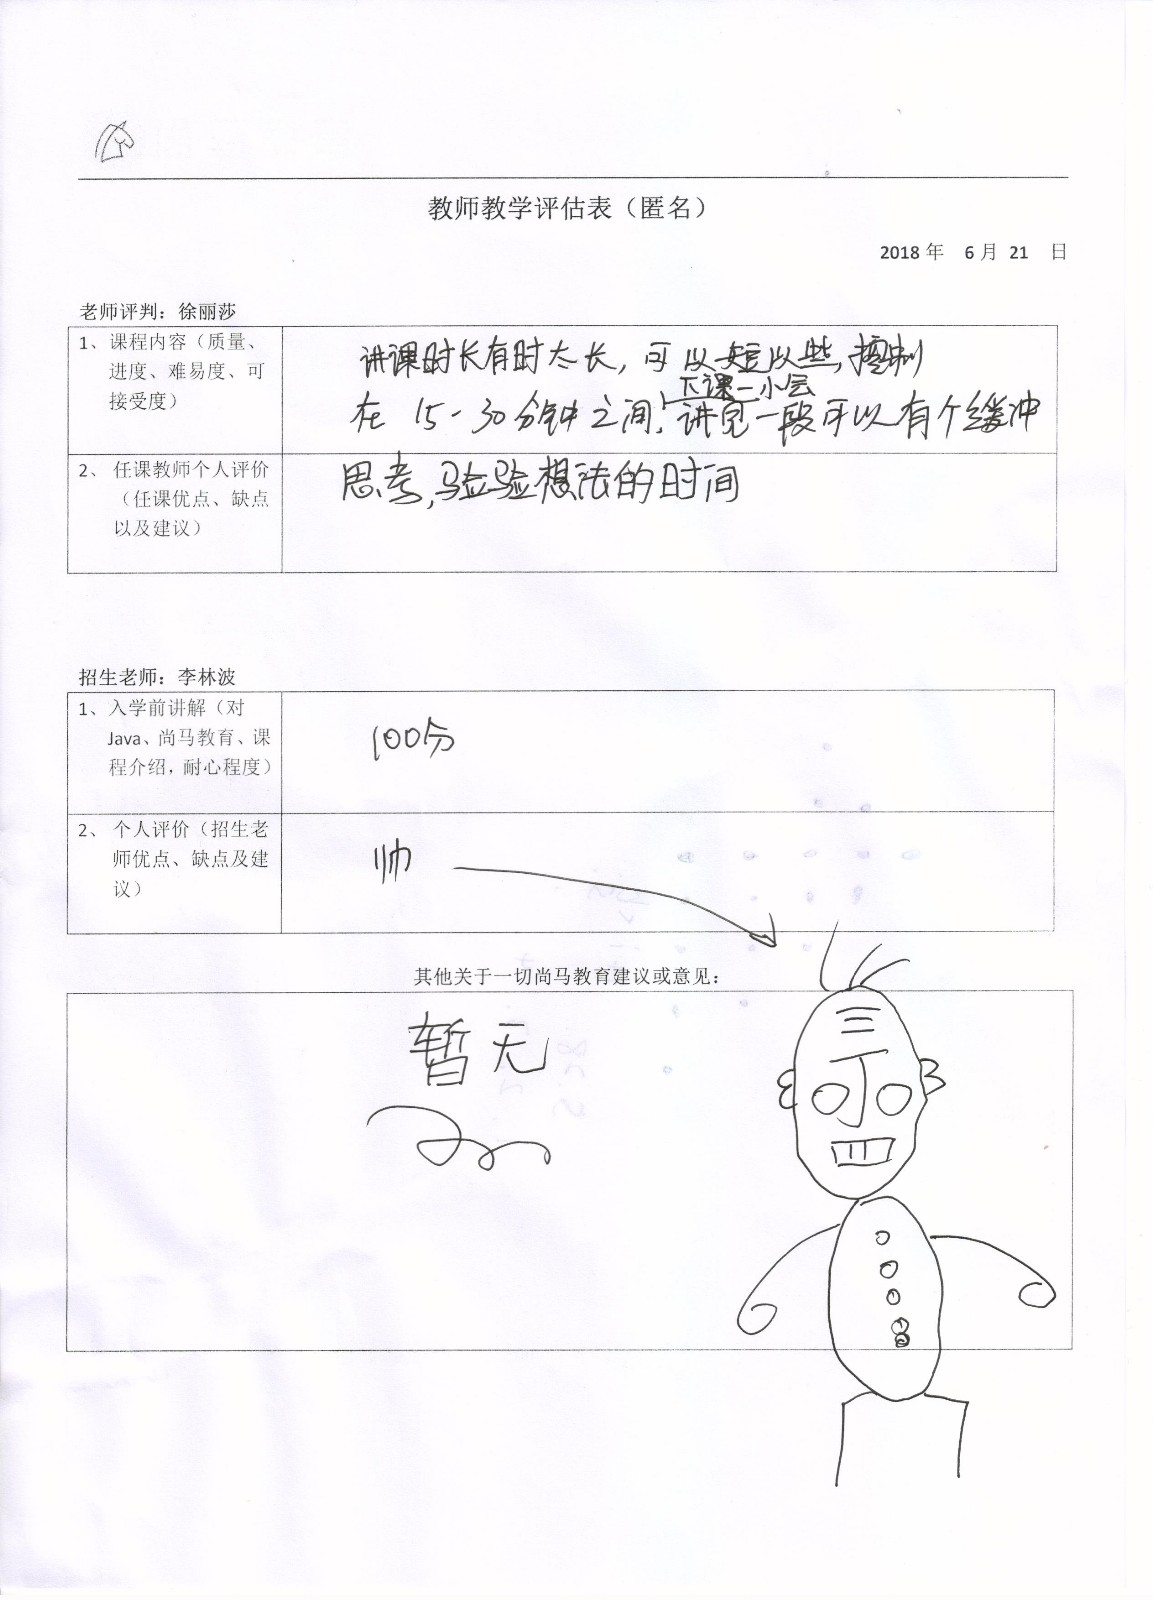 教师教学评估表（匿名）
2018 年 6 月 21 日
老师评判：徐丽莎
1、课程内容（质量、
进度、难易度、可
接受度）
讲课时长有时太长，可以短以些，控制
下课一小会
在 15-30分钟之间，讲完一段可以有个缓冲
2、任课教师个人评价
（任课优点、缺点
以及建议）
思考，验验想法的时间
招生老师：李林波
1、入学前讲解（对
Java、尚马教育、课
程介绍，耐心程度）
100分
2、个人评价（招生老
师优点、缺点及建
议）
帅
其他关于一切尚马教育建议或意见：
暂无